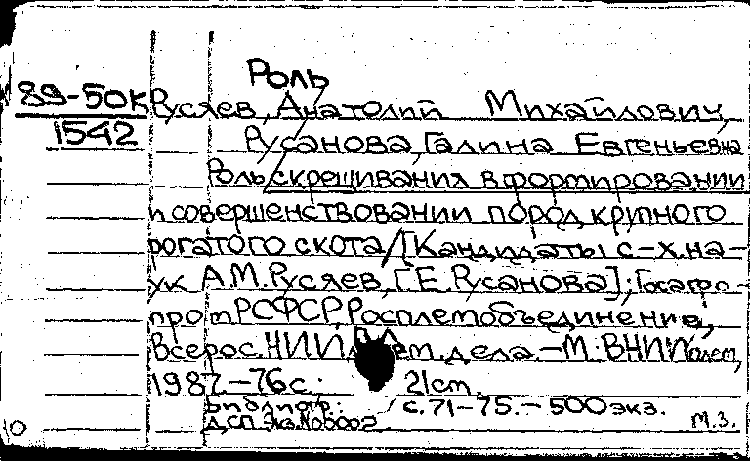 Роль
89-50К
1542
Русяев, Анатолий Михайлович,
Русанова, Галина Евгеньевна
Роль скрещивания в формировании
и совершенствовании пород крупного
рогатого скота / [Кандидаты с-х. на-
ук А.М. Русяев, Г.Е. Русанова]; Госагро-
пром РСФСР, Росплемобъединение,
Всерос. НИИ плем. дела. - М.: ВНИИплем,
1987. - 76 с.; 21 cm.
Библиогр.: с. 71-75. - 500 экз.
ДСП. Экз. N 0002
м.з.